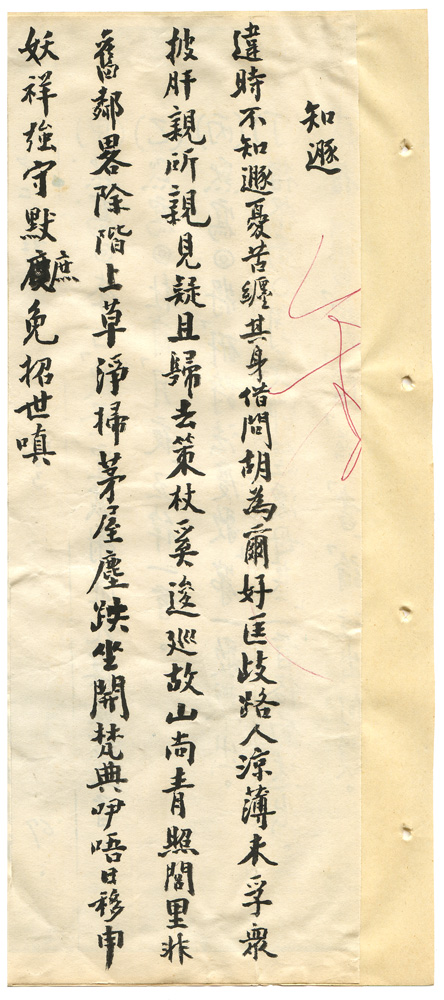 知遯
違時不知遯憂苦纏其身借問胡為爾好匡歧路人涼薄未孚眾
披肝親所親見疑且歸去策杖奚逡巡故山尚青照閭里非
舊鄰畧除階上草淨掃茅屋塵趺坐開梵典咿唔日移申
妖祥強守默庶免招世嗔
庶